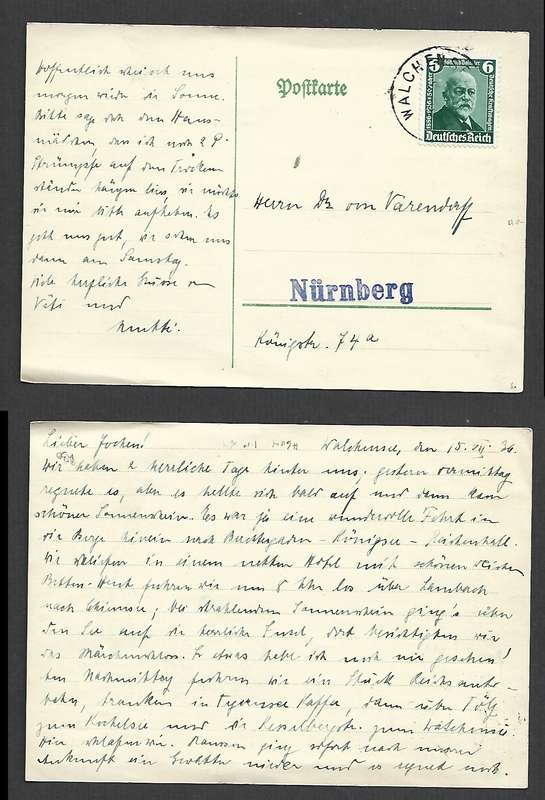 Hoffentlich scheint uns
morgen wieder die Sonne.
Bitte sage doch dem Haus-
mädchen, dass ich noch 2 P.
Strümpfe auf dem Trocken
ständer hängen liess, sie möchte
sie mir bitte aufheben. Es
geht uns gut, wir sehen uns
dann am Samstag.
Viele herzliche Grüsse von
Vati und
Mutti.
Postkarte
WALCHENSEE
6 6
1886-1936 50 Jahre
Deutsches Reich
Herrn Dr. von Varendorff
Nürnberg
Königstr. 74a
Lieber Jochen! Walchensee, den 15. VII. 36.
Wir haben 2 herrliche Tage hinter uns; gestern vormittag
regnete es, aber es hellte sich bald auf und dann kam
schöner Sonnenschein. Es war ja eine wundervolle Fahrt in
die Berge hinein nach Berchtesgaden - Königssee - Reichenhall.
Wir schliefen in einem netten Hotel mit schönen
Betten. Heut fuhren wir um 8 Uhr los über
nach Chiemsee; bei strahlendem Sonnenschein ging's über
den See auf die herrliche Insel, dort besichtigten wir
das Märchenschloss. So etwas habe ich noch nie gesehen!
Am Nachmittag fuhren wir ein Stück Reichsauto-
bahn, tranken in Tegernsee Kaffee, dann über Tölz
zum Kochelsee und die Kesselbergstr. zum Walchensee.
Hier schlafen wir. Draussen ging sofort nach unserer
Ankunft ein Gewitter nieder und es regnet noch.